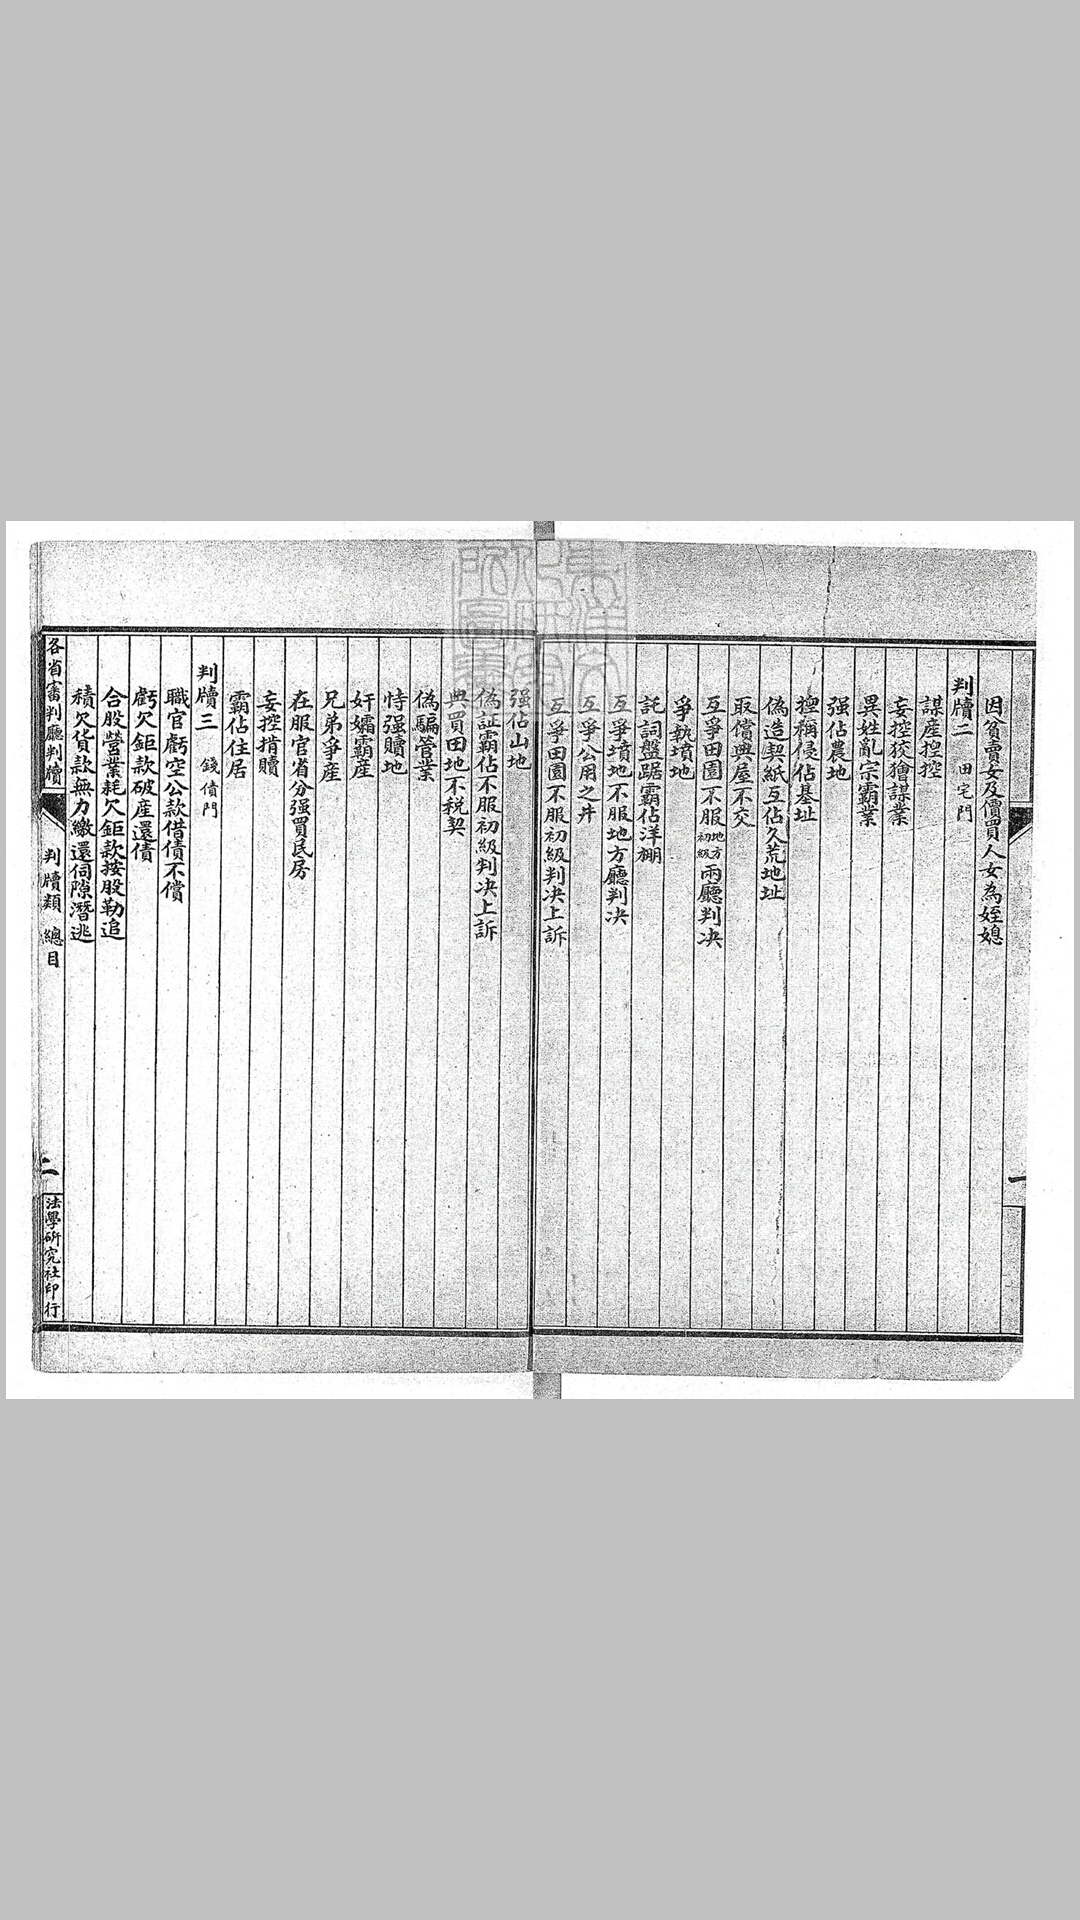 因貧賣女及價買人女為姪媳
判牘二 田宅門
謀產捏控
妄控狡獪謀業
異姓亂宗霸業
强佔農地
捏稱侵佔基址
偽造契紙互佔久荒地址
取償典屋不交
互爭田園不服地方初級兩廳判决
爭執墳地
託詞盤踞霸佔洋棚
互爭墳地不服地方廳判决
互爭公用之井
互爭田園不服初級判决上訴
强佔山地
偽証霸佔不服初級判决上訴
典買田地不稅契
偽騙管業
恃强贖地
奸孀霸産
兄弟爭産
在服官省分强買民房
妄控掯贖
霸佔住居
判牘三 錢債門
職官虧空公款借債不償
虧欠鉅款破産還債
合股營業耗欠鉅款按股勒追
積欠貨款無力繳還伺隙潛逃
各省審判廳判牘 判牘類 總目 二 法學研究社印行
東洋文化研究所圖書